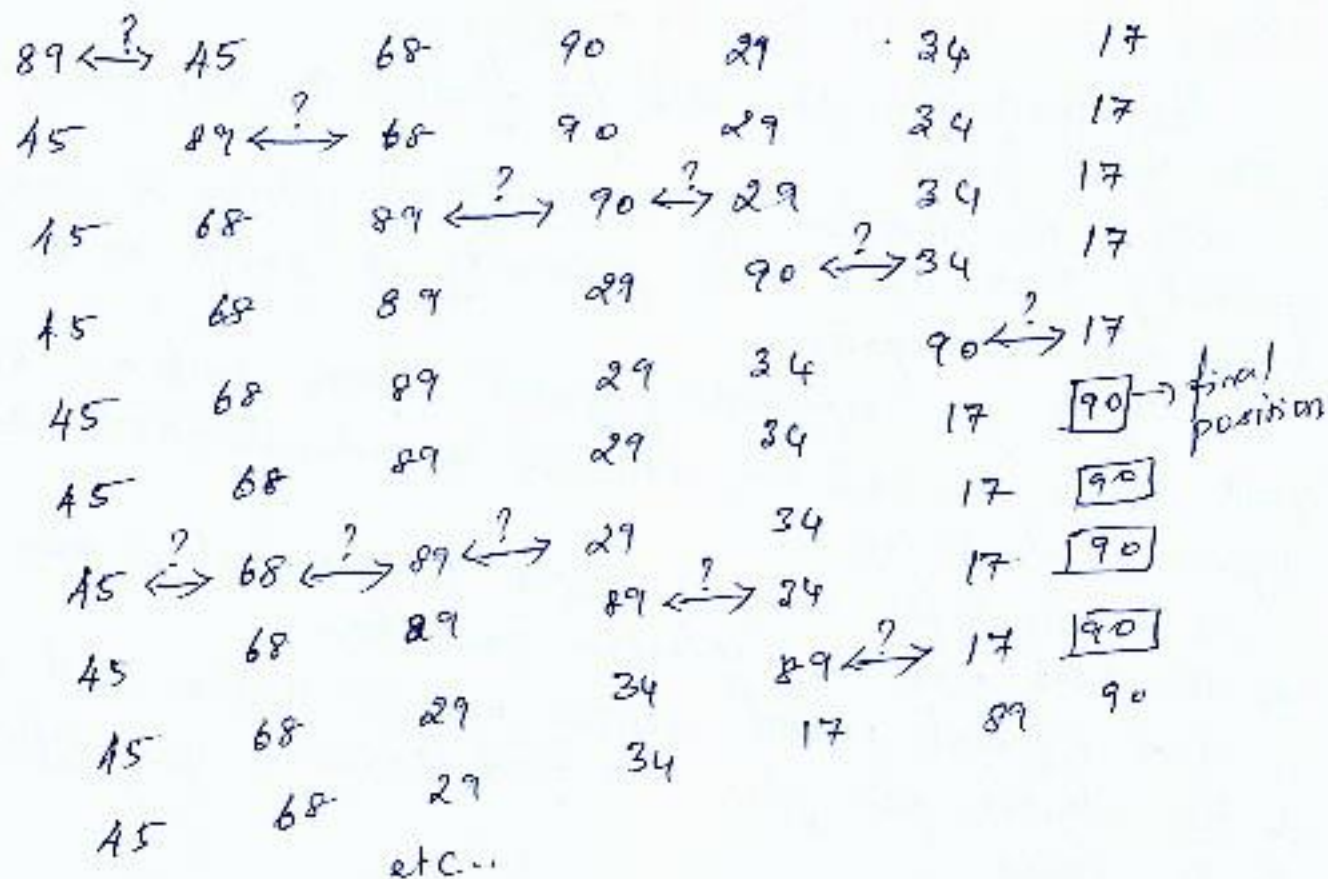 89 <-?-> 45 68 90 29 34 17
45 89 <-?-> 68 90 29 34 17
45 68 89 <-?-> 90 <-?-> 29 34 17
45 68 89 29 90 <-?-> 34 17
45 68 89 29 34 90 <-?-> 17
45 68 89 29 34 17 90 → final
position
45 <-?-> 68 <-?-> 89 <-?-> 29 34 17 90
45 68 29 89 <-?-> 34 17 90
45 68 29 34 89 <-?-> 17 90
45 68 29 34 17 89 90
etc...